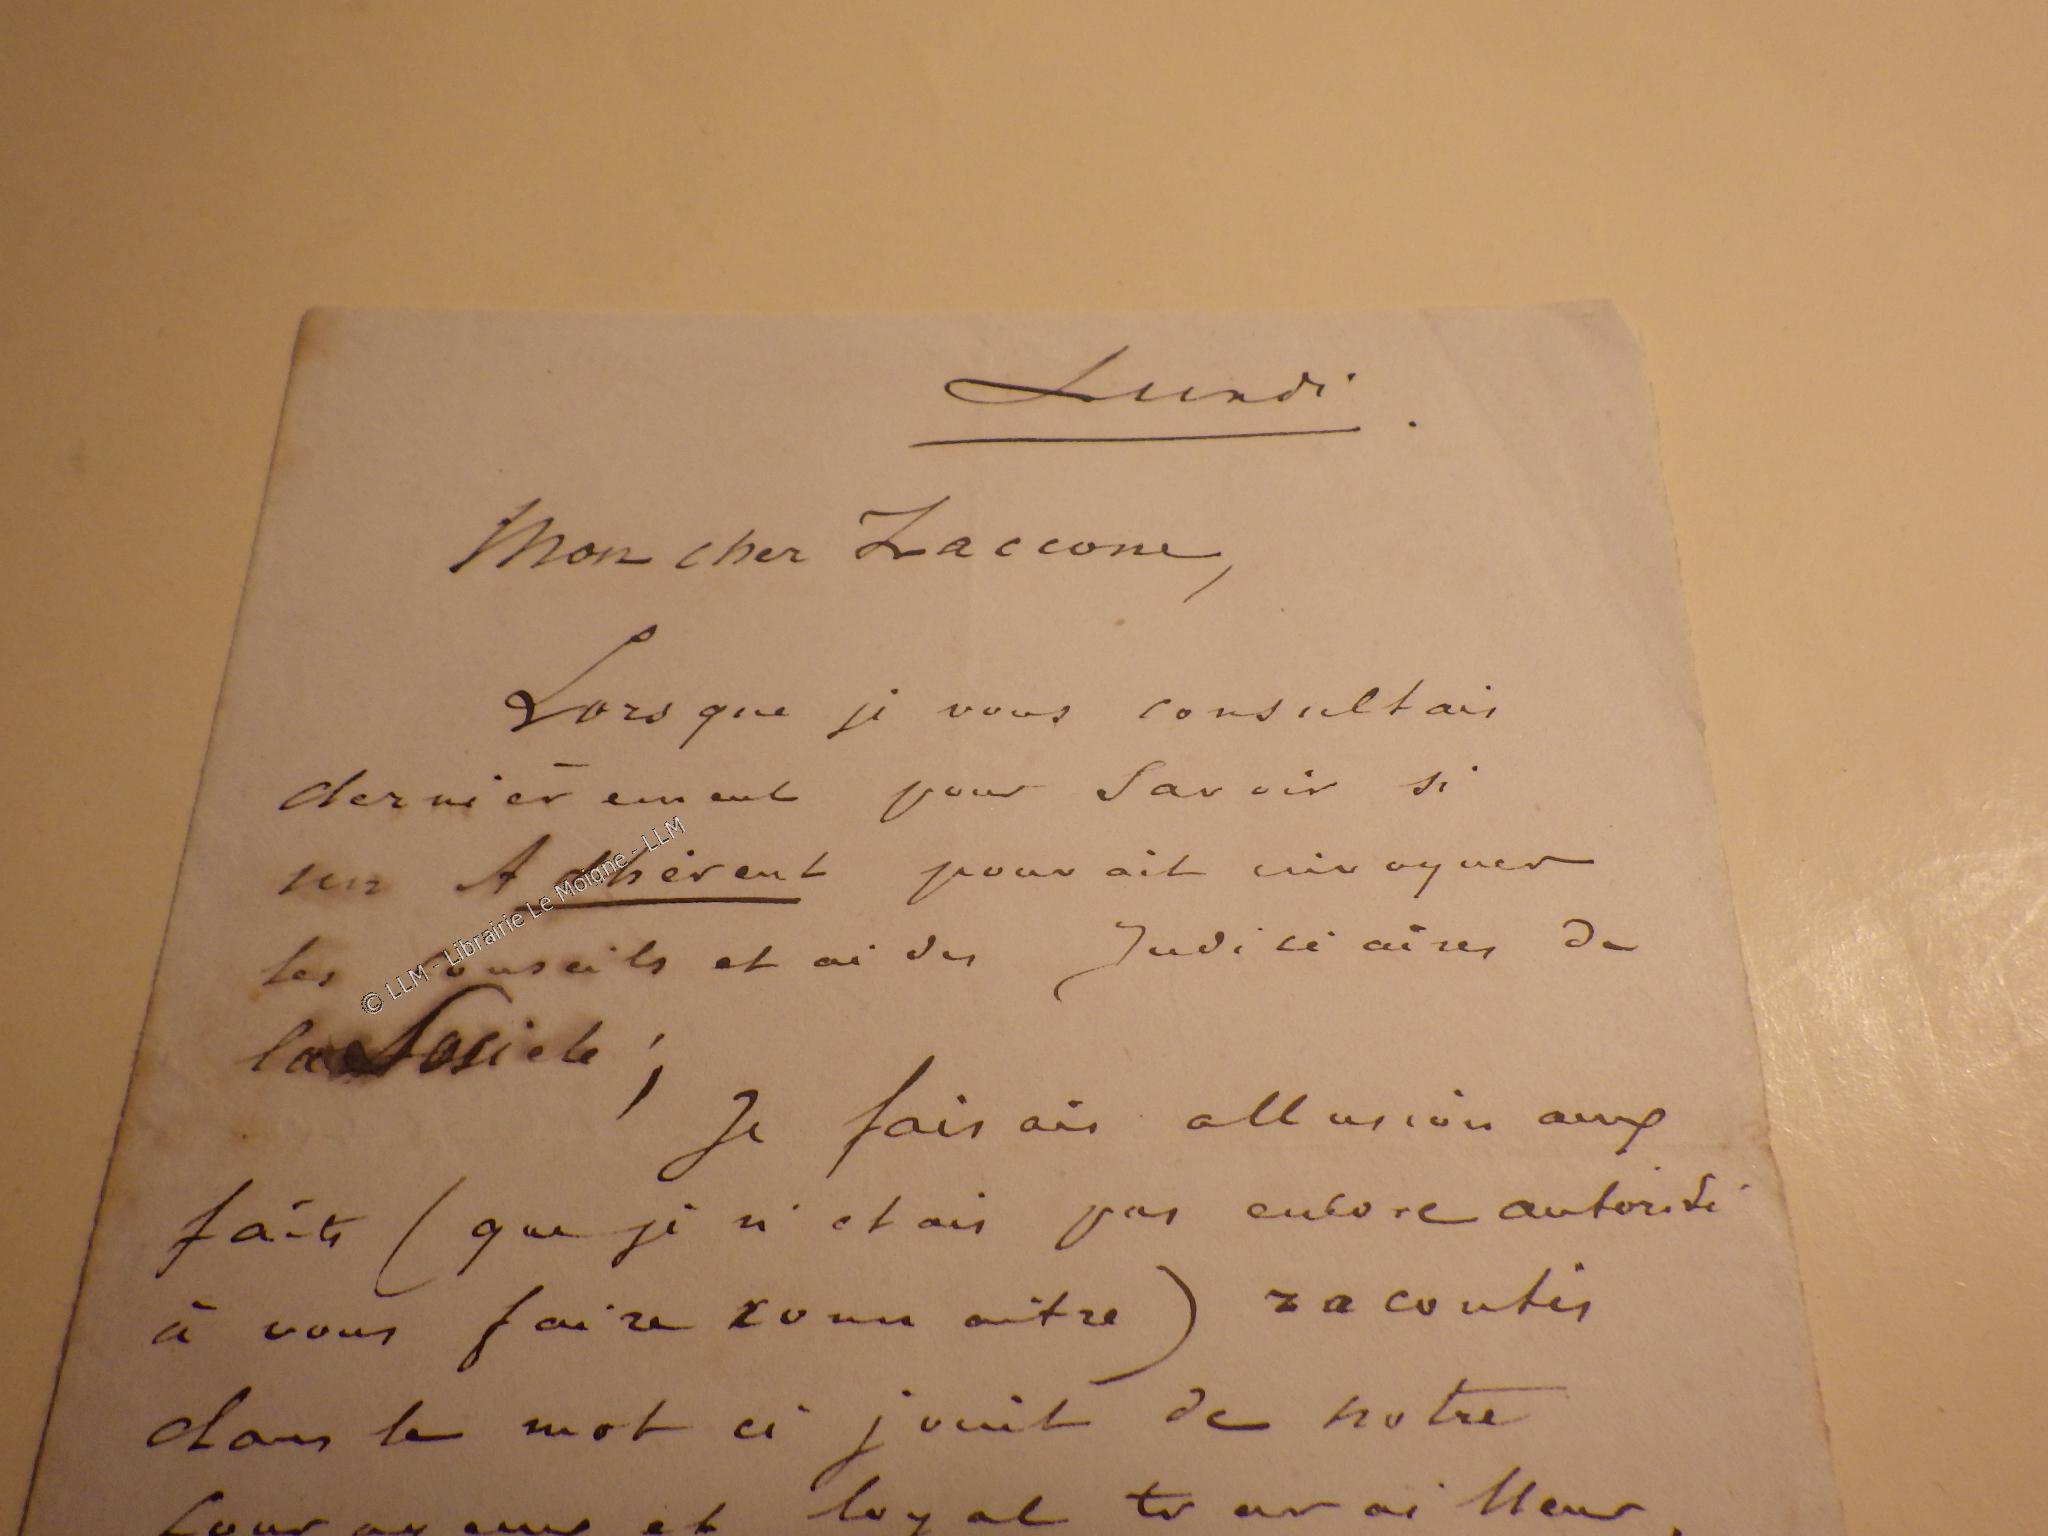 Lundi.
Mon cher Zaccone,
Lorsque je vous consultais
dernièrement pour savoir si
un Adhérent pouvait invoquer
les conseils et aides Judiciaires de
la Société ;
Je faisais allusion aux
faits (que je n'étais pas encore autorisé
à vous faire connaitre) racontés
dans le mot ci joint de notre
courageux et loyal travailleur,
© LLM - Librairie Le Moigne - LLM